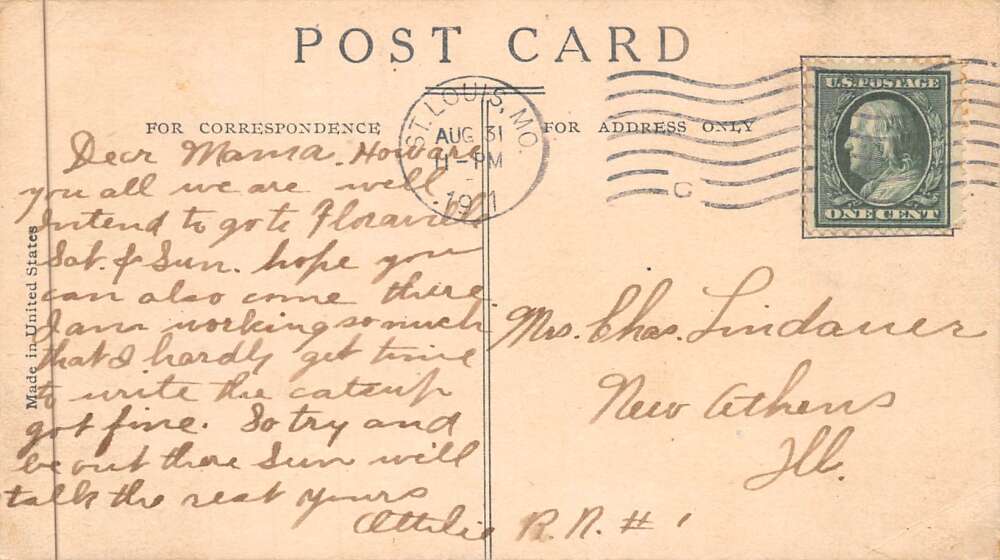 POST CARD
FOR CORRESPONDENCE
FOR ADDRESS ONLY
ST. LOUIS, MO.
AUG 31
11-PM
1911
C
U.S. POSTAGE
ONE CENT
Made in United States
Dear Mama. How are
you all we are well
Intend to go to Floraville
Sat. & Sun. hope you
can also come there
I am working so much
that I hardly get time
to write the catsup
got fine. So try and
be out there Sun will
talk the rest yours
Ottilie
Mrs. Chas. Lindauer
New Athens
Ill.
R. R. # 1